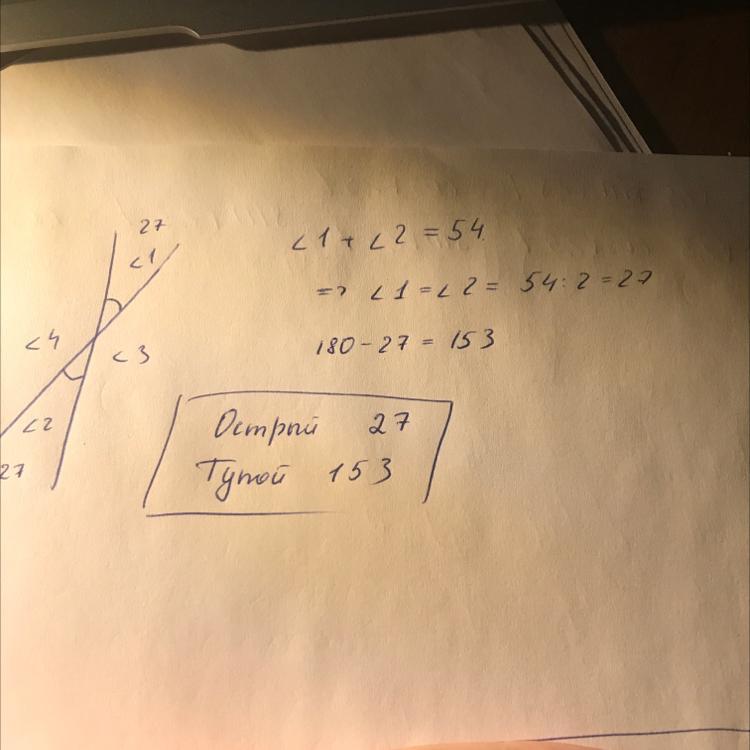 27
∠1
∠4
∠3
∠2
27
∠1 + ∠2 = 54
=> ∠1 = ∠2 = 54 : 2 = 27
180 - 27 = 153
Острый 27
Тупой 153